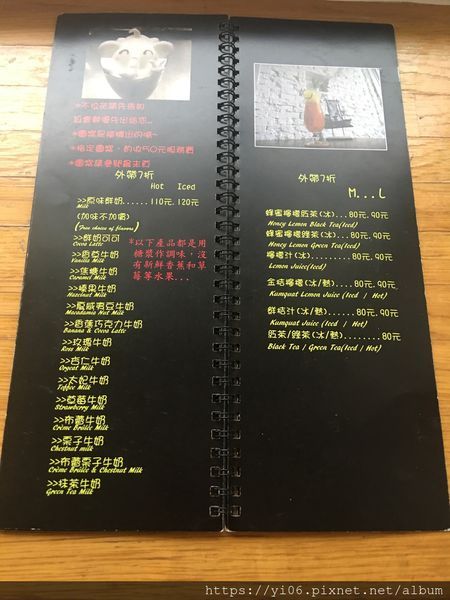 外帶7折
Hot Iced
>>原味鮮奶......110元. 120元
Milk
(加味不加價)
(Free choice of flavour)
>>鮮奶可可
Cocoa Latte
>>香草牛奶
Vanilla Milk
>>焦糖牛奶
Caramel Milk
>>榛果牛奶
Hazelnut Milk
>>夏威夷豆牛奶
Macadamia Nut Milk
>>香蕉巧克力牛奶
Banana & Cocoa Latte
>>玫瑰牛奶
Rose Milk
>>杏仁牛奶
Orgeat Milk
>>太妃牛奶
Toffee Milk
>>草莓牛奶
Strawberry Milk
>>布蕾牛奶
Crème Brulee Milk
>>栗子牛奶
Chestnut milk
>>布蕾栗子牛奶
Crème Brulee & Chestnut Milk
>>抹茶牛奶
Green Tea Milk
*以下產品都是用
糖漿作調味，沒
有新鮮香蕉和草
莓等水果...
外帶7折
M...L
蜂蜜檸檬紅茶(冰)...80元. 90元
Honey Lemon Black Tea(Iced)
蜂蜜檸檬綠茶(冰)...80元. 90元
Honey Lemon Green Tea(Iced)
檸檬汁(冰)..........80元. 90元
Lemon Juice(Iced)
金桔檸檬(冰/熱)....80元. 90元
Kumquat Lemon Juice (Iced | Hot)
鮮桔汁(冰/熱)......80元. 90元
Kumquat Juice (Iced | Hot)
紅茶/綠茶(冰/熱)........80元
Black Tea | Green Tea(Iced | Hot)
https://yi06.pixnet.net/album